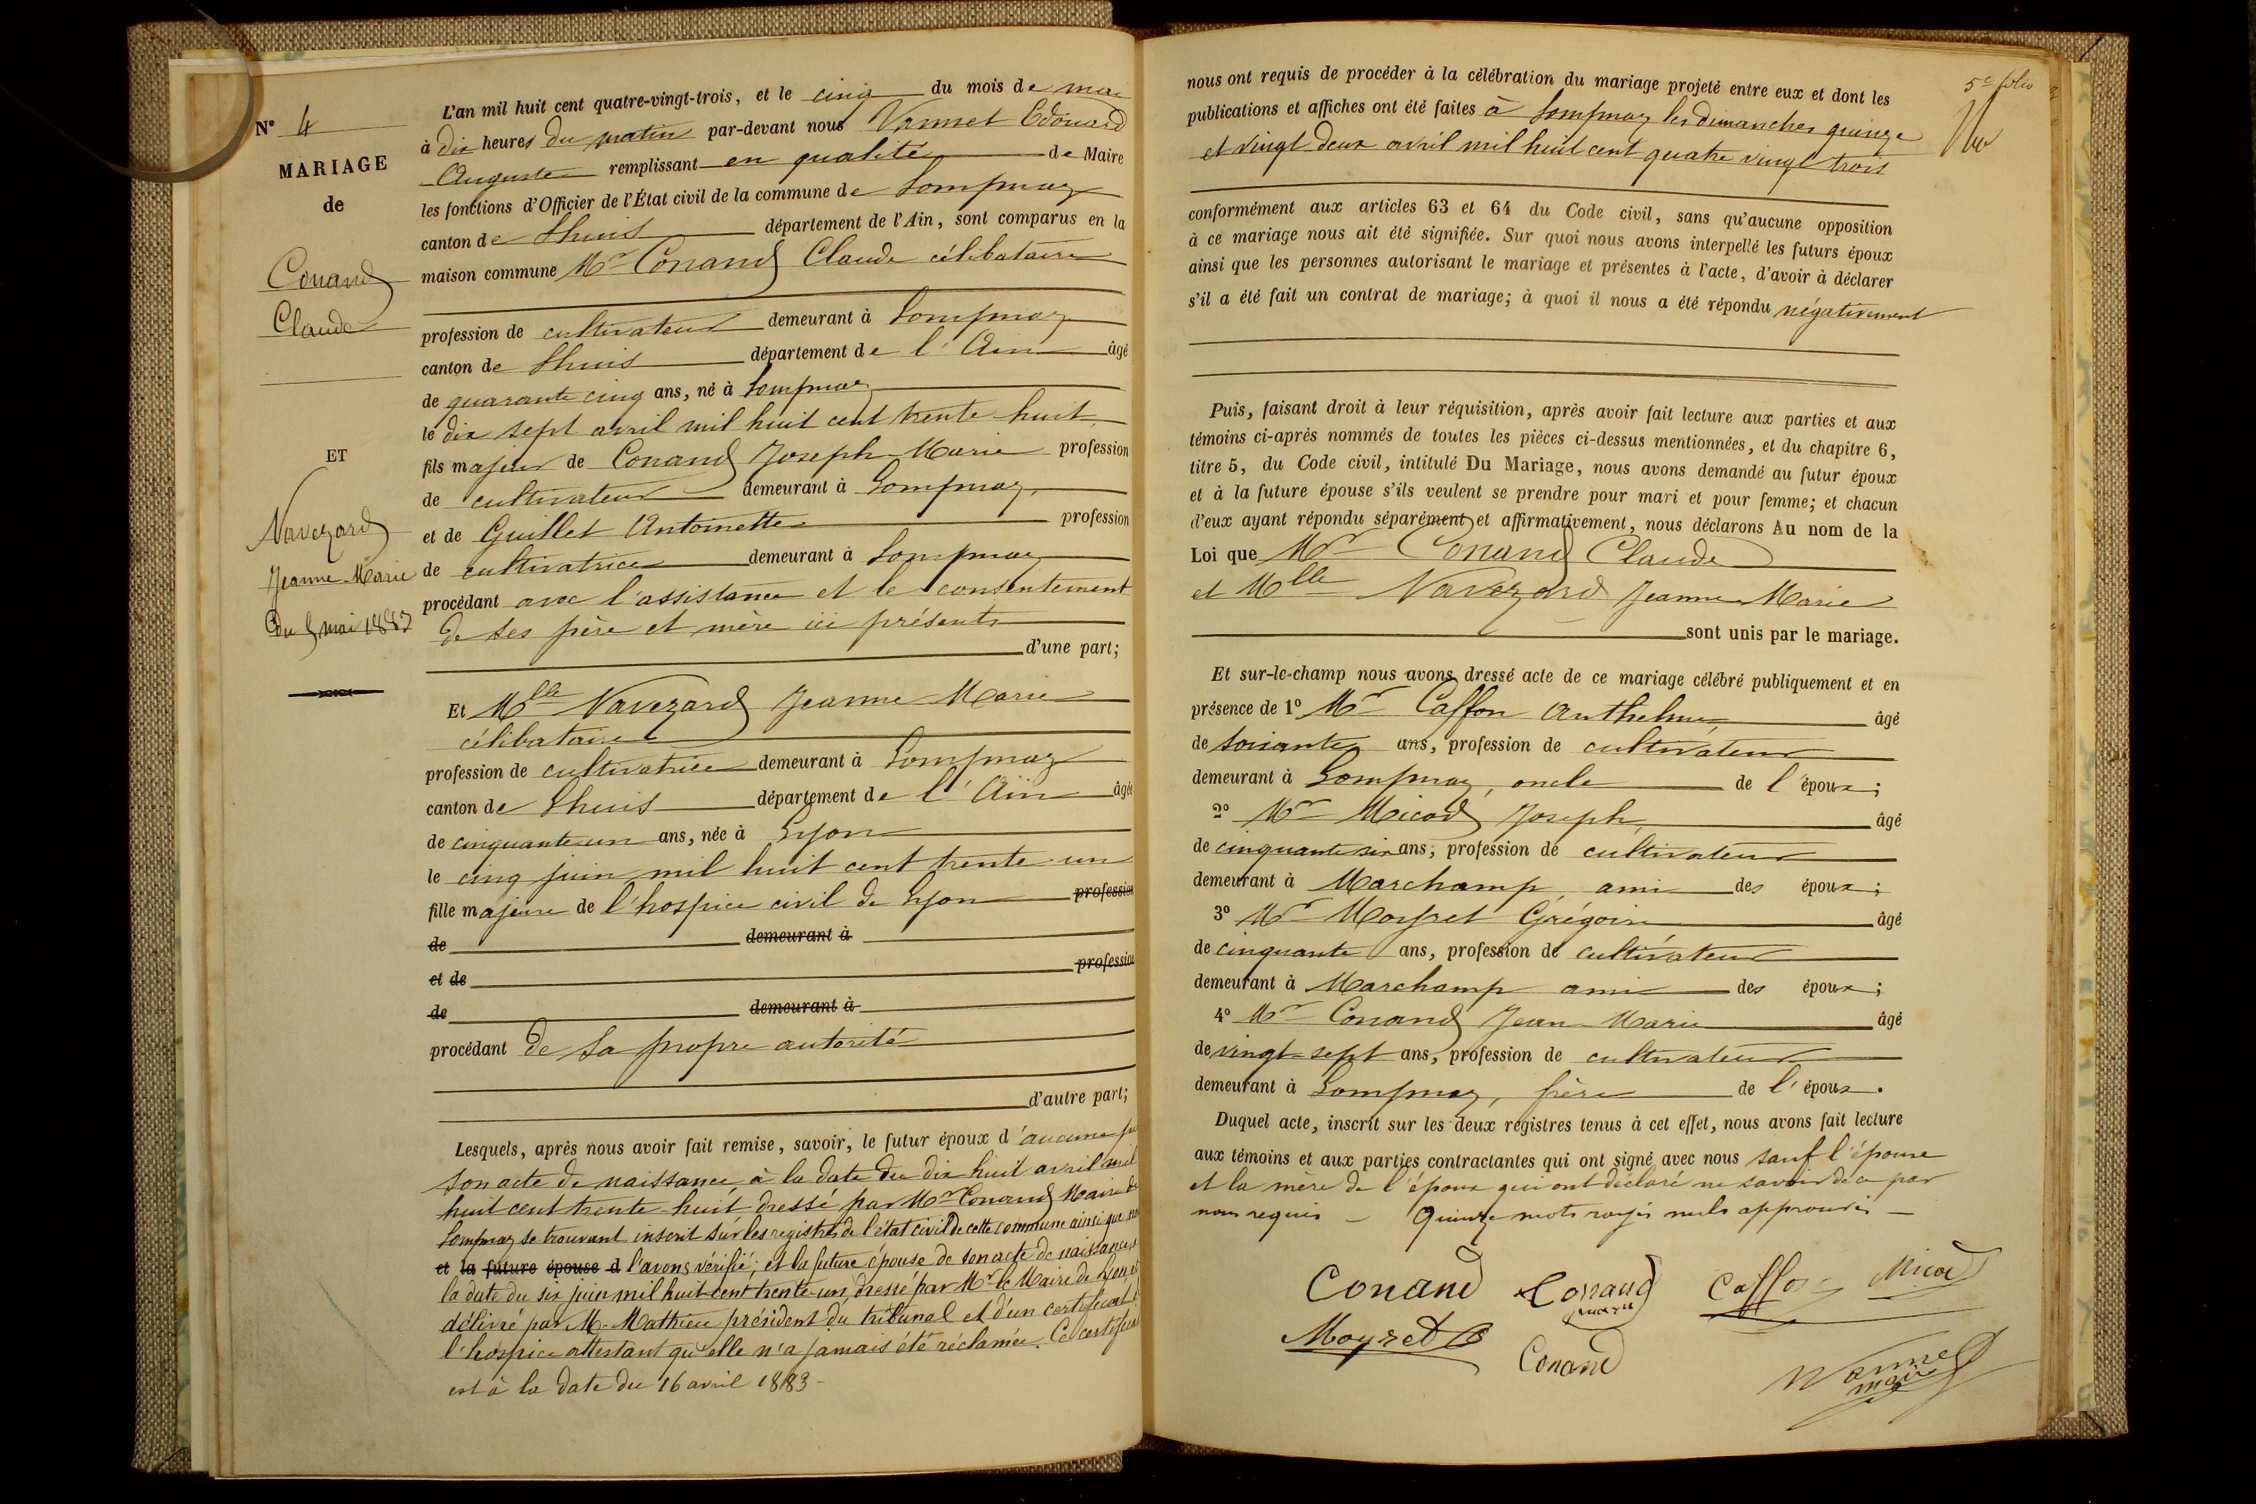 N° 4
MARIAGE
de
Conand
Claude
ET
Navezard
Jeanne Marie
Du 5 mai 1883
L'an mil huit cent quatre-vingt-trois, et le cinq du mois de mai
à dix heures du matin par-devant nous Vannet Edouard
Auguste remplissant en qualité de Maire
les fonctions d'Officier de l'État civil de la commune de Lompnaz
canton de Lhuis département de l'Ain, sont comparus en la
maison commune Mr Conand Claude célibataire
profession de cultivateur demeurant à Lompnaz
canton de Lhuis département de l'Ain âgé
de quarante cinq ans, né à Lompnaz
le dix sept avril mil huit cent trente huit
fils majeur de Conand Joseph Marie profession
de cultivateur demeurant à Lompnaz
et de Guillet Antoinette profession
de cultivatrice demeurant à Lompnaz
procédant avec l'assistance et le consentement
de ses père et mère ici présents
d'une part;
Et Mlle Navezard Jeanne Marie
célibataire
profession de cultivatrice demeurant à Lompnaz
canton de Lhuis département de l'Ain âgée
de cinquante un ans, née à Lyon
le cinq juin mil huit cent trente un
fille majeure de l'hospice civil de Lyon profession
de demeurant à
et de profession
de demeurant à
procédant de sa propre autorité
d'autre part;
Lesquels, après nous avoir fait remise, savoir, le futur époux d'aucune
son acte de naissance à la date du dix huit avril mil
huit cent trente huit dressé par Mr Conand Maire de
Lompnaz se trouvant inscrit sur les registres de l'état civil de cette commune ainsi que
et la future épouse d l'avons vérifié; et la future épouse de son acte de naissance
la date du six juin mil huit cent trente un dressé par Mr le Maire de Lyon et
délivré par M. Mathieu président du tribunal et d'un certificat
l'hospice attestant qu'elle n'a jamais été réclamée. Ce certificat
est à la date du 16 avril 1883
5e folio
nous ont requis de procéder à la célébration du mariage projeté entre eux et dont les
publications et affiches ont été faites à Lompnaz les dimanches quinze
et vingt deux avril mil huit cent quatre vingt trois
conformément aux articles 63 et 64 du Code civil, sans qu'aucune opposition
à ce mariage nous ait été signifiée. Sur quoi nous avons interpellé les futurs époux
ainsi que les personnes autorisant le mariage et présentes à l'acte, d'avoir à déclarer
s'il a été fait un contrat de mariage; à quoi il nous a été répondu négativement
Puis, faisant droit à leur réquisition, après avoir fait lecture aux parties et aux
témoins ci-après nommés de toutes les pièces ci-dessus mentionnées, et du chapitre 6,
titre 5, du Code civil, intitulé Du Mariage, nous avons demandé au futur époux
et à la future épouse s'ils veulent se prendre pour mari et pour femme; et chacun
d'eux ayant répondu séparément et affirmativement, nous déclarons Au nom de la
Loi que Mr Conand Claude
et Mlle Navezard Jeanne Marie
sont unis par le mariage.
Et sur-le-champ nous avons dressé acte de ce mariage célébré publiquement et en
présence de 1° Mr Caffon Anthelme âgé
de soixante ans, profession de cultivateur
demeurant à Lompnaz, oncle de l'époux;
2° Mr Micod Joseph, âgé
de cinquante six ans, profession de cultivateur
demeurant à Marchamp, ami des époux;
3° Mr Moyret Grégoire âgé
de cinquante ans, profession de cultivateur
demeurant à Marchamp ami des époux;
4° Mr Conand Jean Marie âgé
de vingt-sept ans, profession de cultivateur
demeurant à Lompnaz, frère de l'époux.
Duquel acte, inscrit sur les deux registres tenus à cet effet, nous avons fait lecture
aux témoins et aux parties contractantes qui ont signé avec nous sauf l'épouse
et la mère de l'époux qui ont déclaré ne savoir de ce par
nous requis – Quinze mots rayés nuls approuvés –
Conand Conand Caffon Micod
marie
Moyret G Conand
Vannet
maire